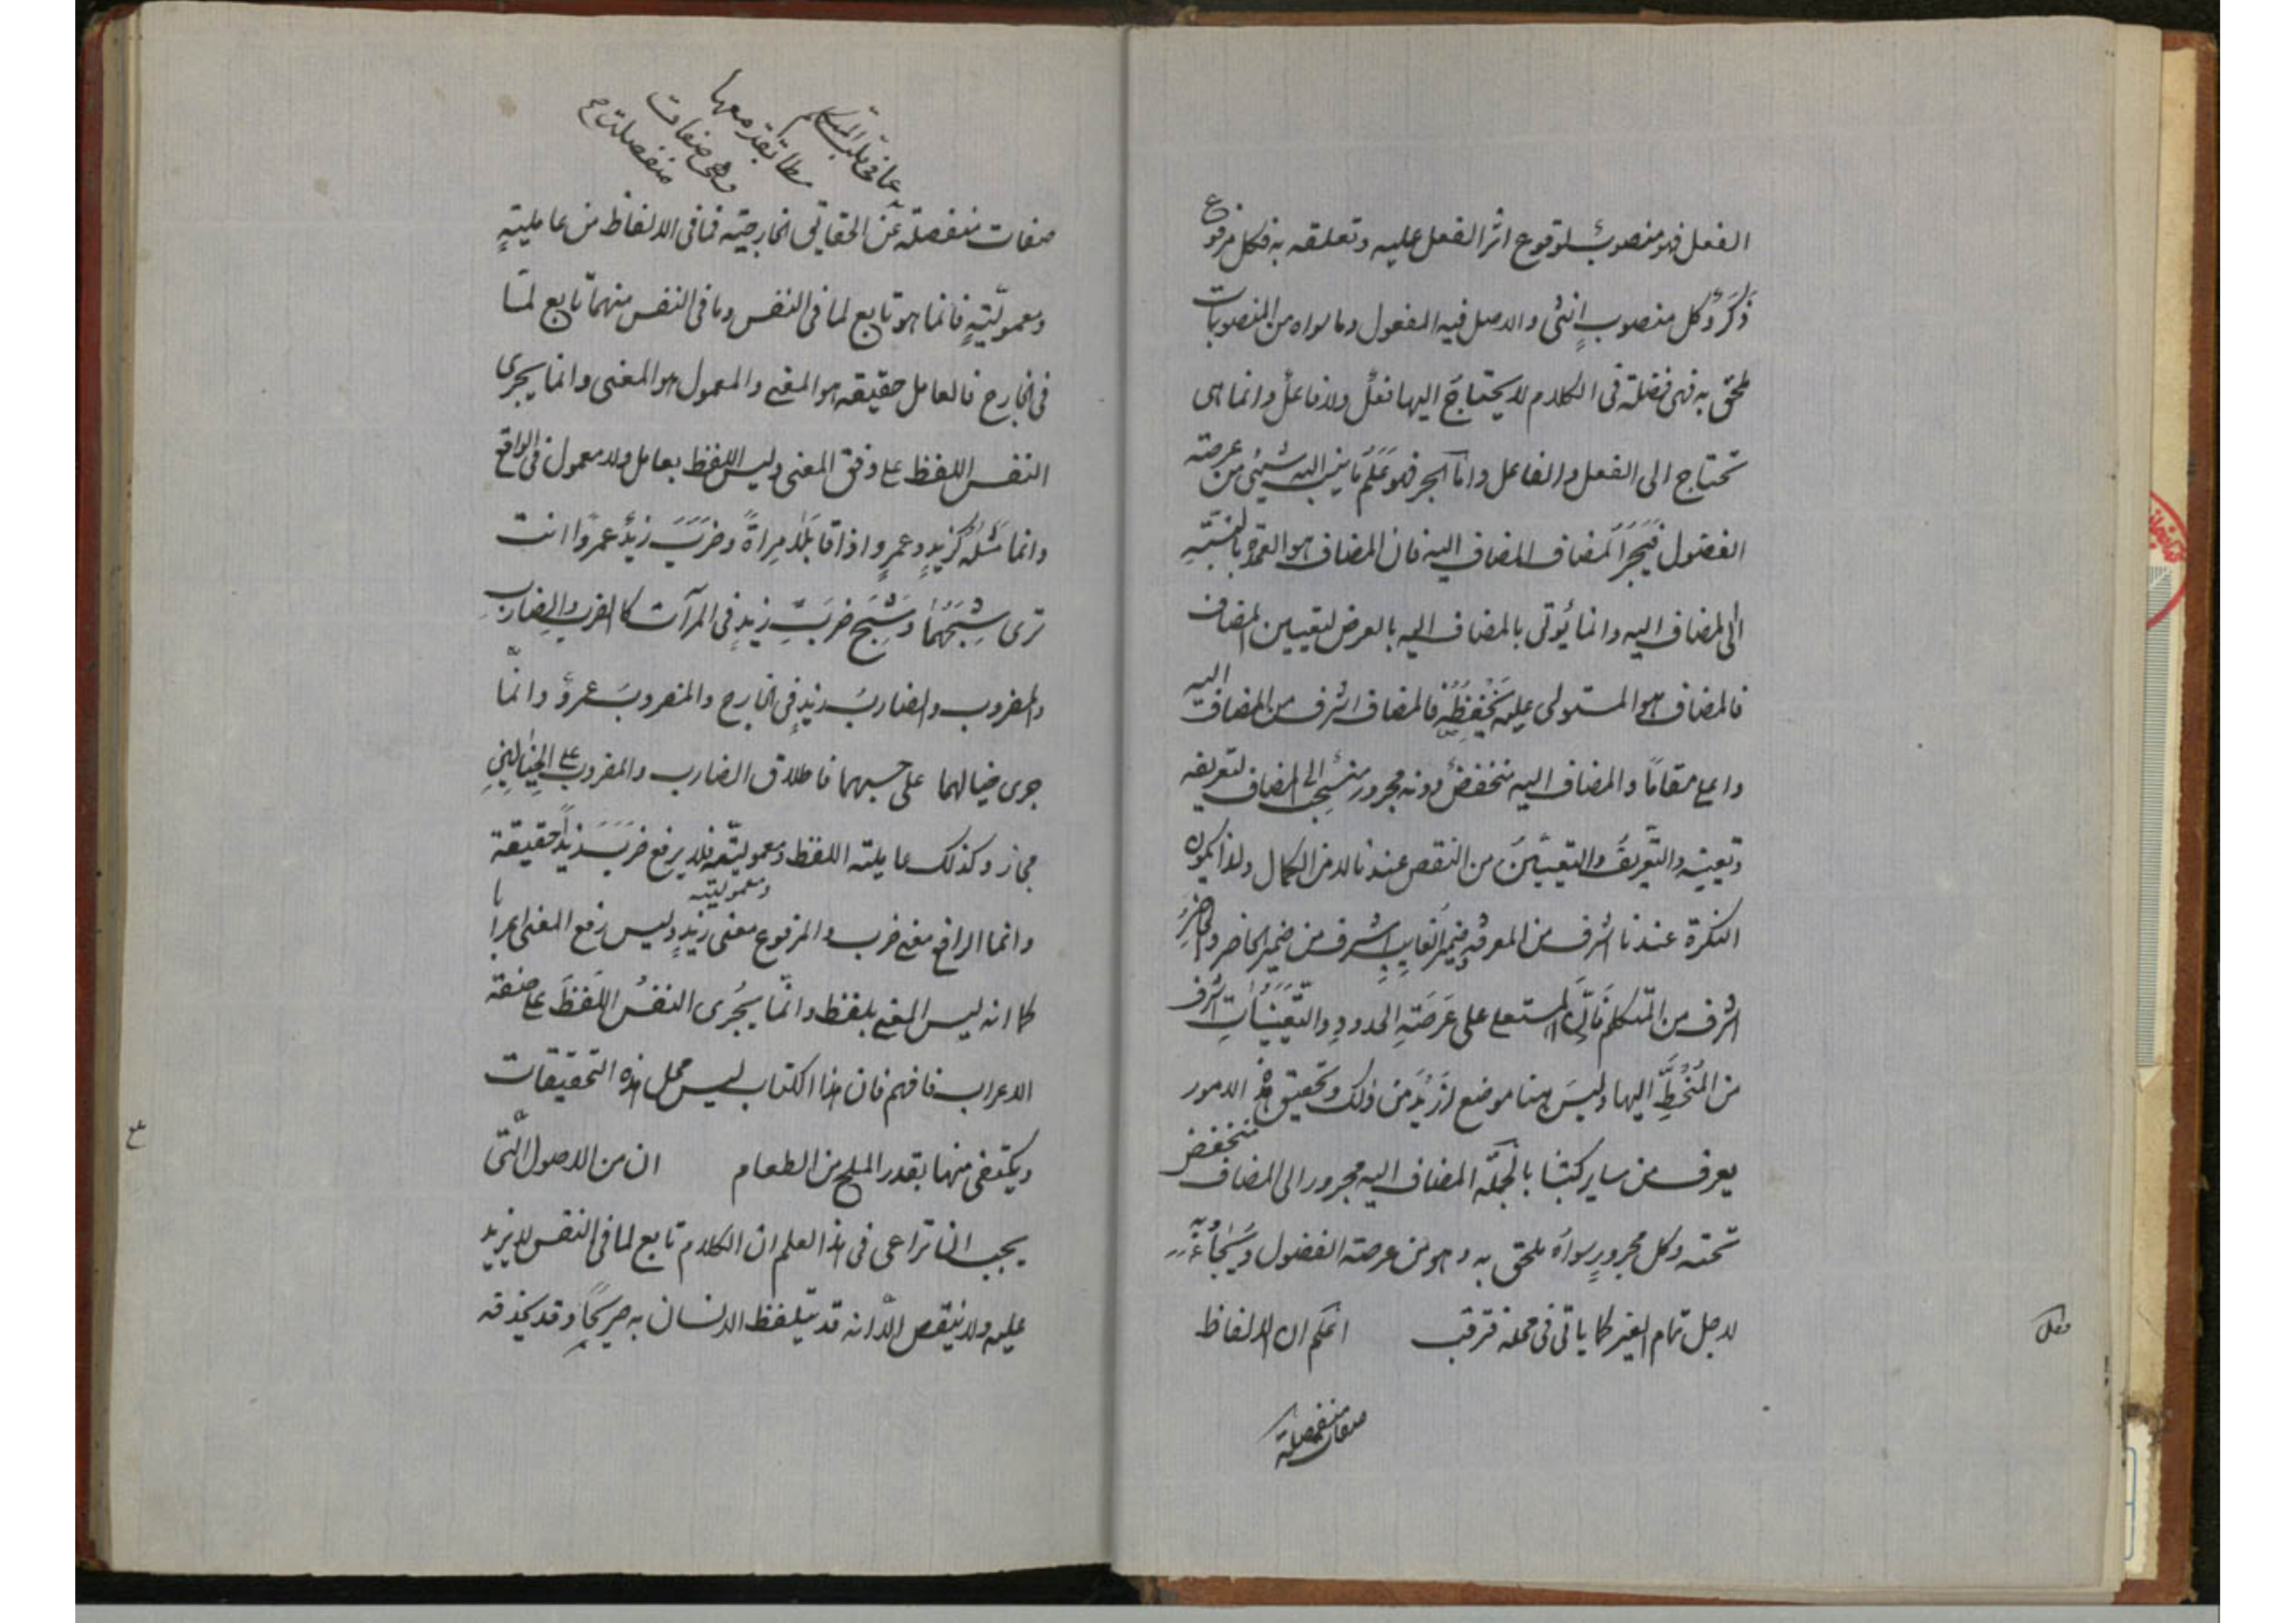 الفعل فهو منصوب لوقوع اثر الفعل عليه وتعلقه به فكل مرفوع
ذكر وكل منصوب انثى والاصل فيه المفعول وما سواه من المنصوبات
ملحق به فهى فضلة فى الكلام لا يحتاج اليها فعل ولا فاعل وانما هى
تحتاج الى الفعل والفاعل واما الجر فهو علم ما ينجر اليه شيئ من عرصة
الفضول فيجر المضاف المضاف اليه فان المضاف هو العمدة بالنسبة
الى المضاف اليه وانما يؤتى بالمضاف اليه بالعرض لتعيين المضاف
فالمضاف هو المستولى عليه فالمضاف اشرف من المضاف اليه
واعلى مقاما والمضاف اليه منخفض دونه مجرور الى المضاف لتعريفه
وتعيينه والتعريف والتعيين من النقص عندنا لا من الكمال ولذا يكون
النكرة عندنا اشرف من المعرفة وضمير الغايب اشرف من ضمير الحاضر والحاضر
اشرف من المتكلم فان المستعلى على عرصة الحدود والتعينات اشرف
من المنحط اليها وليس هنا موضع ازيد من ذلك وتحقيق هذه الامور
يعرف من ساير كتبنا بالجملة المضاف اليه مجرور الى المضاف منخفض
تحته وكل مجرور سواه ملحق به وهو من عرصة الفضول ويجاء به
لاجل تمام الغير كما ياتى فى محله فترقب اعلم ان الالفاظ
صفات منفصلة
على
مطابقة معها
وهى صفات
منفصلة
صفات منفصلة عن الحقايق الخارجية فما فى الالفاظ من عاملية
ومعمولية فانما هو تابع لما فى النفس وما فى النفس منهما تابع لما
فى الخارج فالعامل حقيقة هو المعنى والمعمول هو المعنى وانما يجرى
النفس اللفظ على وفق المعنى وليس اللفظ بعامل ولا معمول فى الواقع
وانما مثله كزيد وعمرو اذا قابلا مرآة وضرب زيد عمروا انت
ترى شبحهما وشبح ضرب زيد فى المرآت كالضرب والضارب
والمضروب والضارب زيد فى الخارج والمضروب عمرو وانما
جرى خيالهما على حسبهما فاطلاق الضارب والمضروب على الخيالين
مجاز وكذلك عاملية اللفظ ومعموليته فلا يرفع ضرب زيدا حقيقة
ومعموليته
وانما الرافع معنى ضرب والمرفوع معنى زيد وليس رفع المعنى اعرابا
كما انه ليس المعنى بلفظ وانما يجرى النفس اللفظ على صفة
الاعراب فافهم فان هذا الكتاب ليس محل هذه التحقيقات
ويكتفى منها بقدر الملح من الطعام ان من الاصول التى
يجب ان تراعى فى هذا العلم ان الكلام تابع لما فى النفس لا يزيد
عليه ولا ينقص الا انه قد يتلفظ الانسان به صريحا وقد يحذفه